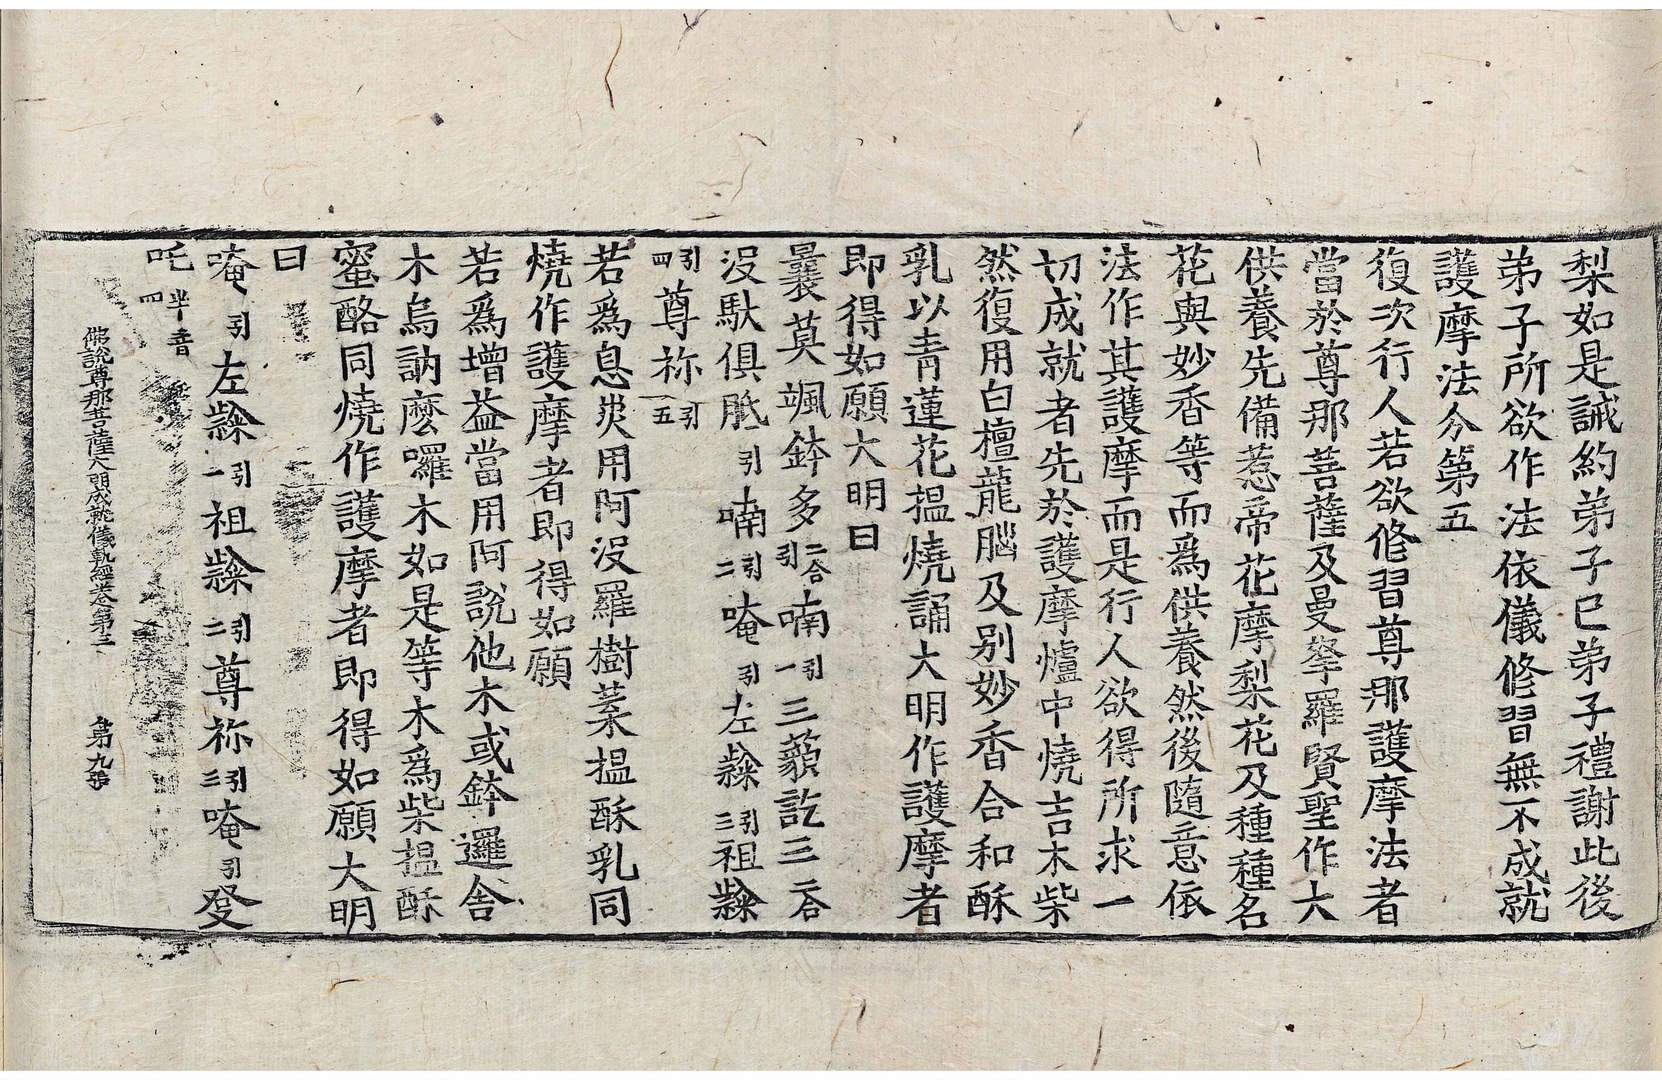 梨如是誡約弟子已弟子禮謝此後
弟子所欲作法依儀修習無不成就
護摩法分第五
復次行人若欲修習尊那護摩法者
當於尊那菩薩及曼拏羅賢聖作大
供養先備惹帝花摩梨花及種種名
花與妙香等而爲供養然後隨意依
法作其護摩而是行人欲得所求一
切成就者先於護摩爐中燒吉木柴
然復用白檀龍腦及别妙香合和酥
乳以青蓮花搵燒誦大明作護摩者
即得如願大明曰
曩莫颯鉢多二合引喃引一三藐訖三二合
沒馱俱胝引喃引二唵引左隸引三祖隸
引四尊祢引五
若爲息災用阿沒羅樹葉搵酥乳同
燒作護摩者即得如願
若爲增益當用阿說他木或鉢邏舍
木烏訥麽囉木如是等木爲柴搵酥
蜜酪同燒作護摩者即得如願大明
曰
唵引左隸引一祖隸引二尊祢引三唵引發
吒半音四
佛說尊那菩薩大明成就儀軌經卷第三 第九張